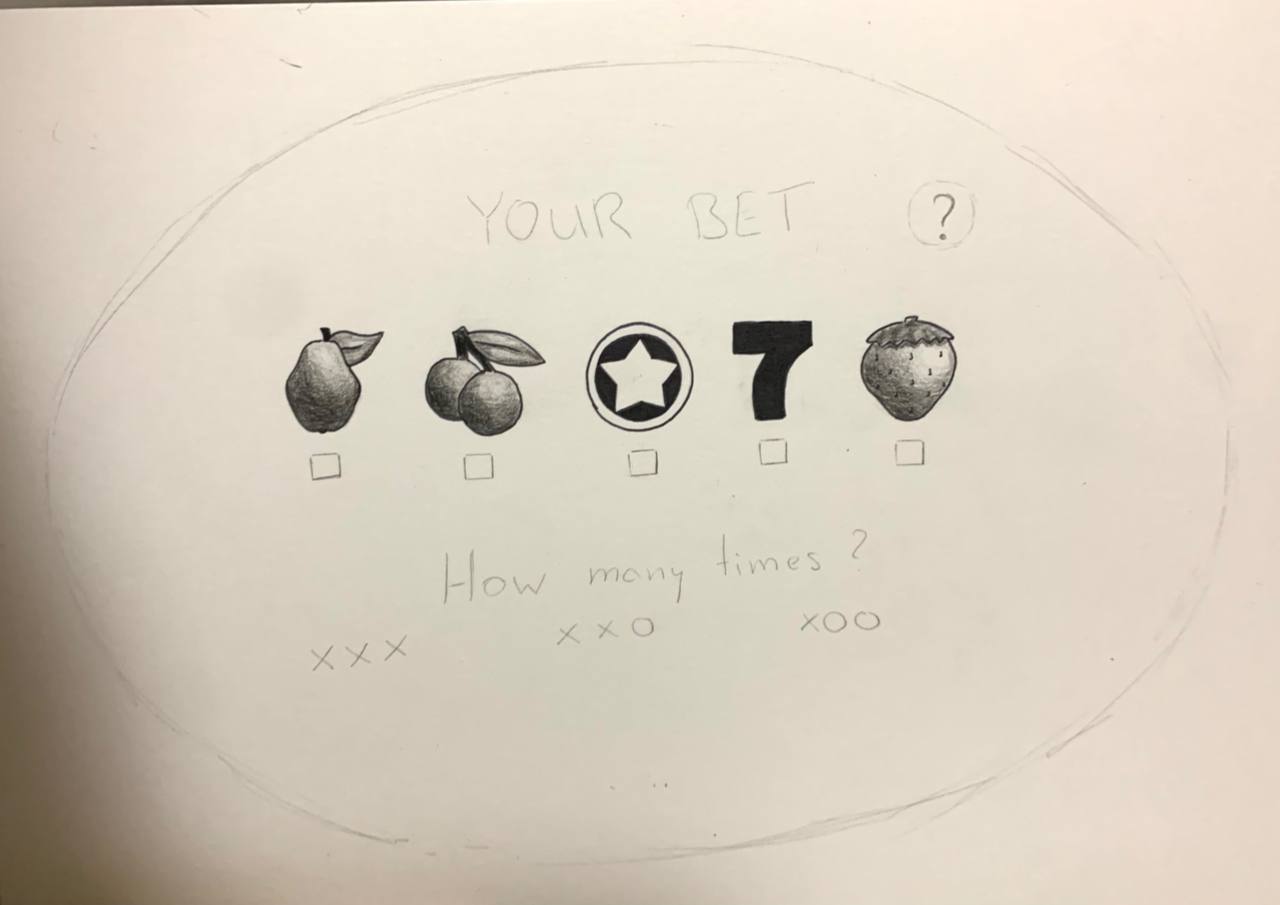 YOUR BET ?
7
How many times ?
XXX XXO XOO